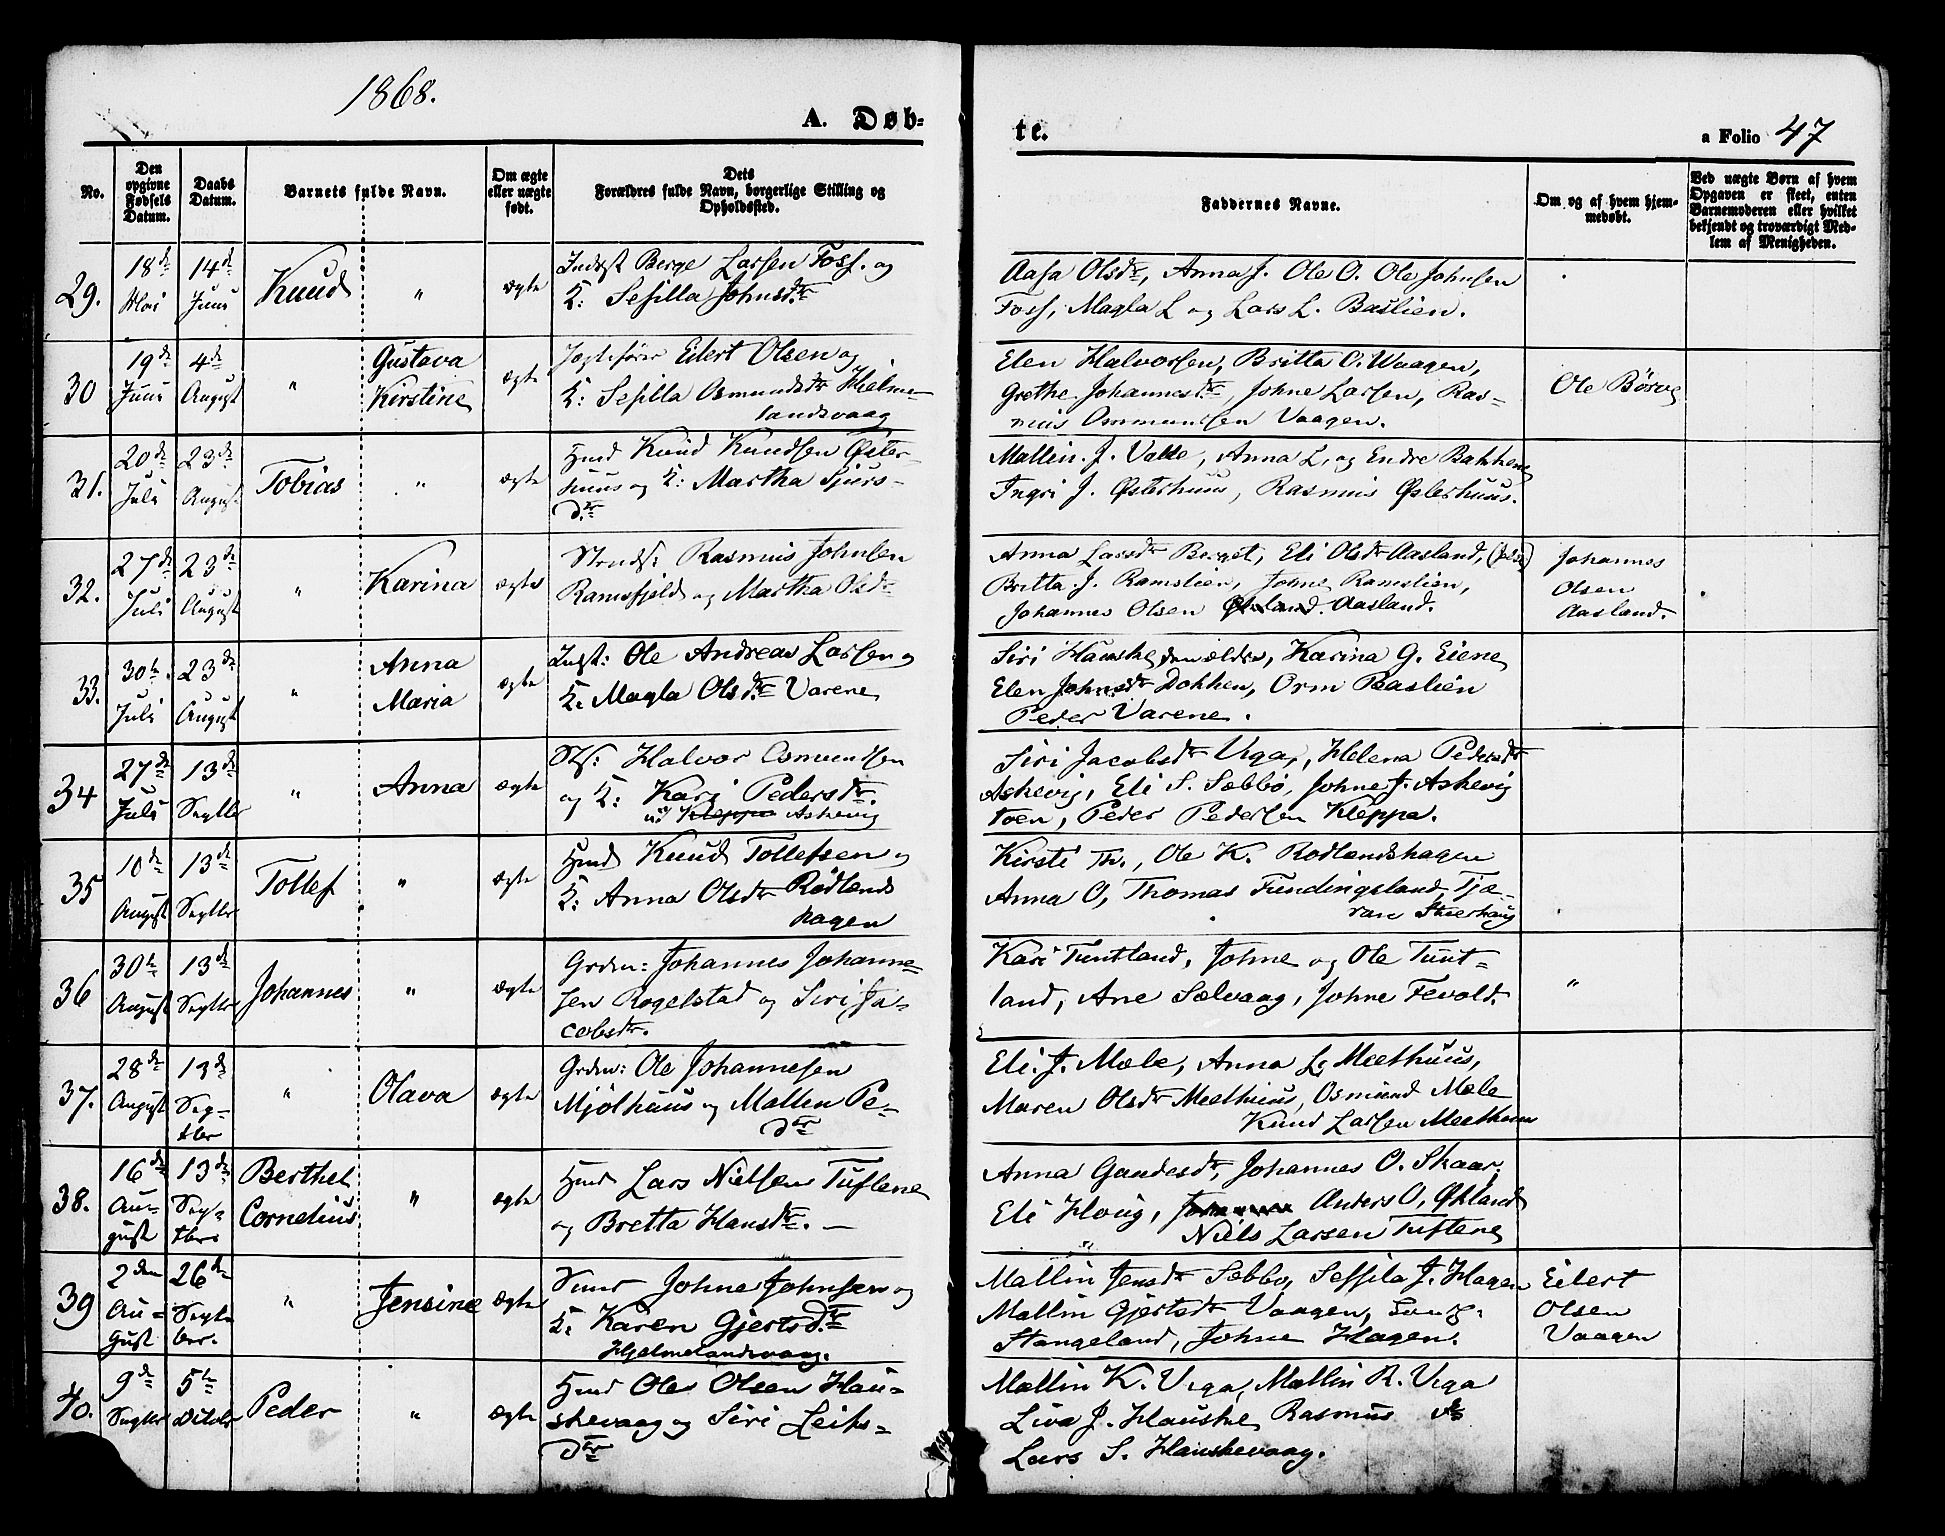 1868.
A. Døb-
te.
a Folio 47
No.
Den opgivne Fødsels Datum.
Daabs Datum.
Barnets fulde Navn.
Om ægte eller uægte født.
Dets Forældres fulde Navn, borgerlige Stilling og Opholdssted.
Faddernes Navne.
Om og af hvem hjem-
medøbt.
Ved uægte Børn af hvem
Opgaven er skeet, enten
Barnemoderen eller hvilket
bekjendt og troværdigt Med-
lem af Menigheden.
29. 18de Mai 14de Juni Knud " ægte
Indst Berge Larsen Foss. og
K: Sesilla Johnsdtr
Aasa Olsdtr, Anna J. Ole O. Ole Johnsen
Foss, Magla L og Lars L. Baslien.
30 19de Juni 4de August " Gustava Kirstine ægte
Jagtefører Eilert Olsen og
K: Sesilla Osmundsdtr Hielme-
landsvaag
Elen Halvorsen, Britta O. Waagen,
Grethe Johannesdtr, Johne Larsen, Ras-
mus Osmundsen Vaagen.
Ole Børve
31. 20de Juli 23de August Tobias " ægte
Hmd Knud Knudsen Øster-
huus og K: Martha Sjurs-
dtr
Mallin J. Valde, Anna L. og Endre Bakkene
Ingri J. Østerhuus, Rasmus Østerhuus.
32. 27de Juli 23de August " Karina ægte
Rasmus Johnsen
Ramsfjeld og Martha Olsdtr
Anna Larsdtr Berget, Eli Olsdtr Aasland,
Britta J. Ramslien, Johne Ramslien,
Johannes Olsen Aasland.
Johannes
Olsen
Aasland.
33. 30te Juli 23de August " Anna Maria ægte
Indst: Ole Andreas Larsen og
K. Magla Olsdtr Varene
Siri Hauske den ældre, Karina G. Eiene
Elen Johnsdtr Dokken, Orm Baslien
Peder Varene.
34 27de Juli 13de Septbr " Anna ægte
Halvor Osmundsen
og K: Kari Pedersdtr.
Kleppa Askevig
Siri Jacobsdtr Viga, Helena Pedersdtr
Askevig, Eli S. Sæbbø, Johne J. Askevig
toen, Peder Pedersen Kleppa.
35 10de August 13de Septbr Tollef " ægte
Hmd Knud Tollefsen og
K: Anna Olsdtr Rødlands
hagen
Kirsti Th., Ole K. Rødlandshagen
Anna O, Thomas Fundingsland, Tjæ-
ran Steerhaug
36 30te August 13de Septbr Johannes " ægte
Grdm: Johannes Johanne-
sen Rogelstad og Siri Ja-
cobsdtr.
Kari Tuntland, Johne og Ole Tunt-
land, Ane Sælvaag, Johne Fevold.
"
37. 28de August 13de Sep-
tbr " Olava ægte
Grdm: Ole Johannesen
Mjølhuus og Mallen Pe-
dtr
Eli. J. Mæle, Anna L. Meethuus,
Maren Olsdtr Meethuus, Osmund Mæle
Knud Larsen Meethuus
38. 16de Au-
gust 13de Sep-
tbr Berthel Cornelius " ægte
Hmd Lars Nielsen Tuftene
og Bretta Hansdtr. —
Anna Gundesdtr, Johannes O. Skaar,
Eli Houg, Anders O, Økland
Niels Larsen Tuftene
39 2den Au-
gust 26de Septbr. " Jensine ægte
Johne Johnsen og
K: Karen Gjertsdtr
Hjelmelandsvaag.
Mallin Jensdtr Sæbbø, Sessila J. Hagen
Mallin Gjertsdtr Vaagen,
Stangeland, Johne Hagen.
Eilert
Olsen
Vaagen
40. 9de Septbr 5te Octobr Peder " ægte
Hmd Ole Olsen Hau-
skevaag og Siri Leifs-
dtr
Mallin K. Viga, Mallin R. Viga
Liva J. Hauske Rasmus ds
Lars S. Hauskevaag.